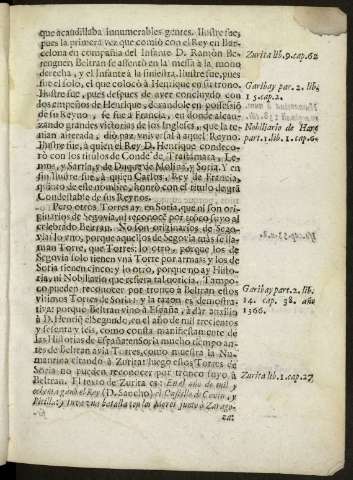 que acaudillaba innumerables gentes. Ilustre fue,
pues la primera vez que comió con el Rey en Bar-
celona en compañia del Infante D. Ramòn Be-
renguer, Beltran se assentò en la messa à la mano
derecha, y el Infante à la siniestra. Ilustre fue, pues
fue el solo, el que colocò à Henrique en su trono.
Ilustre fue, pues despues de aver concluydo con
los empeños de Henrique, dexandole en possessiõ
de su Reyno, se fue à Francia, en donde alcan-
zando grandes victorias de los Ingleses, que la te-
nian aterrada, diò paz vniversal à aquel Reyno.
Ilustre fue, à quien el Rey D. Henrique condeco-
rò con los titulos de Conde de Trastamara, Le-
mus, y Sarria, y de Duque de Molina, y Soria. Y en
fin Ilustre fue, à quien Carlos, Rey de Francia,
quinto de este nombre, honrò con el titulo de gra
Condestable de sus Reynos.
Pero otros Torres ay, en Soria, que ni son ori-
ginarios de Segovia, ni reconocẽ por tronco suyo al
celebrado Beltran. No son originarios de Sego-
via: lo vno, porque aquellos de Segovia mas se lla-
man Torre, que Torres: lo otro, porque los de
Segovia solo tienen vna Torre por armas; y los de
Soria tienen cinco: y lo otro, porque no ay Histo-
ria, ni Nobiliario que refiera tal noticia. Tampo-
co pueden reconocer por tronco à Beltran estos
vltimos Torres de Soria: y la razon es demostra-
tiva: porque Beltran vino à España, à dàr auxilio
à D. Henriq el Segundo, en el año de mil trecientos
y sesenta y seis, como consta manifiestamente de
las Historias de España: en Soria mucho tiempo an-
tes de Beltran avia Torres, como muestra la Nu-
mantina citando à Zurita: luego estos Torres de
Soria no pueden reconocer por tronco suyo à
Beltran. El texto de Zurita es: En el año de mil y
ochenta ganò el Rey (D. Sancho) el Castillo de Corvin, y
Pitilla: y tuvo vna batalla en los Moros junto à Zarago-
za:
Zurita lib. 9. cap. 62
Garibay part. 2. lib.
15. cap. 2.
Nobiliario de Haro
part. 1. lib. 1. cap. 6.
Garibay part. 2. lib.
14. cap. 38. año
1366.
Zurita lib. 1. cap. 27